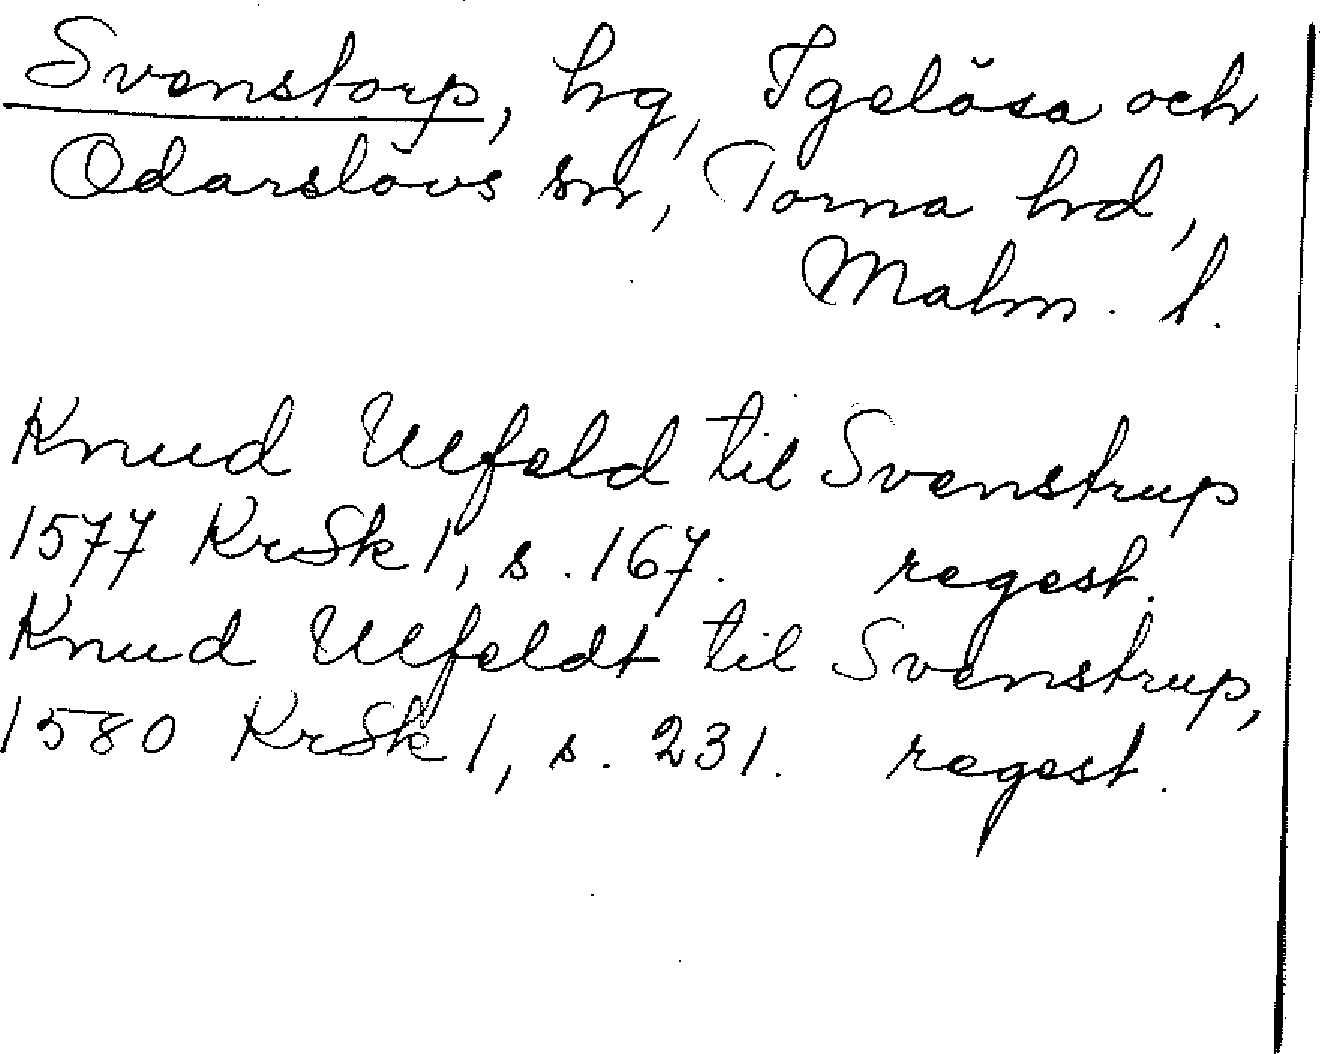 Svenstorp, hg, Igelösa och
Odarslövs sn, Torna hd,
Malm. l.
Knud Ulfeld til Svenstrup
1577 KrSk 1, s. 167. regest.
Knud Ulfeldt til Svenstrup,
1580 KrSk 1, s. 231. regest.